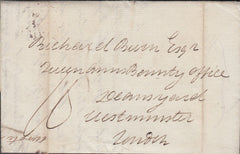 Richard Burn Esqr
Queen Anns Bounty Office
Deans yard
Westminster
London